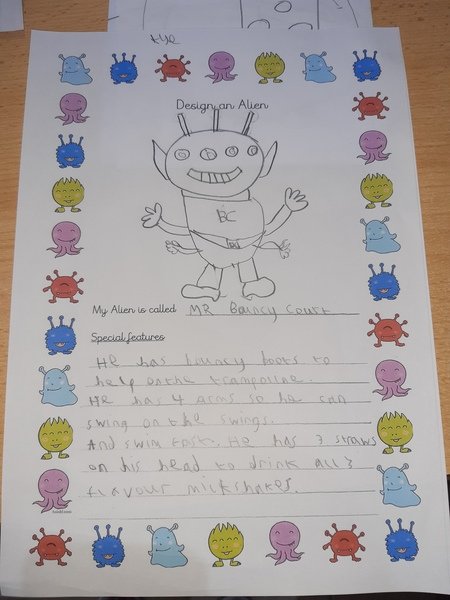 Design an Alien
BC
My Alien is called MR Bouncy Court
Special features
He has bouncy boots to
help onthe trampoline.
He has 4 arms so he can
swing on the swings.
And swim fast. He has 3 straws
on his head to drink all 3
flavour milkshakes.